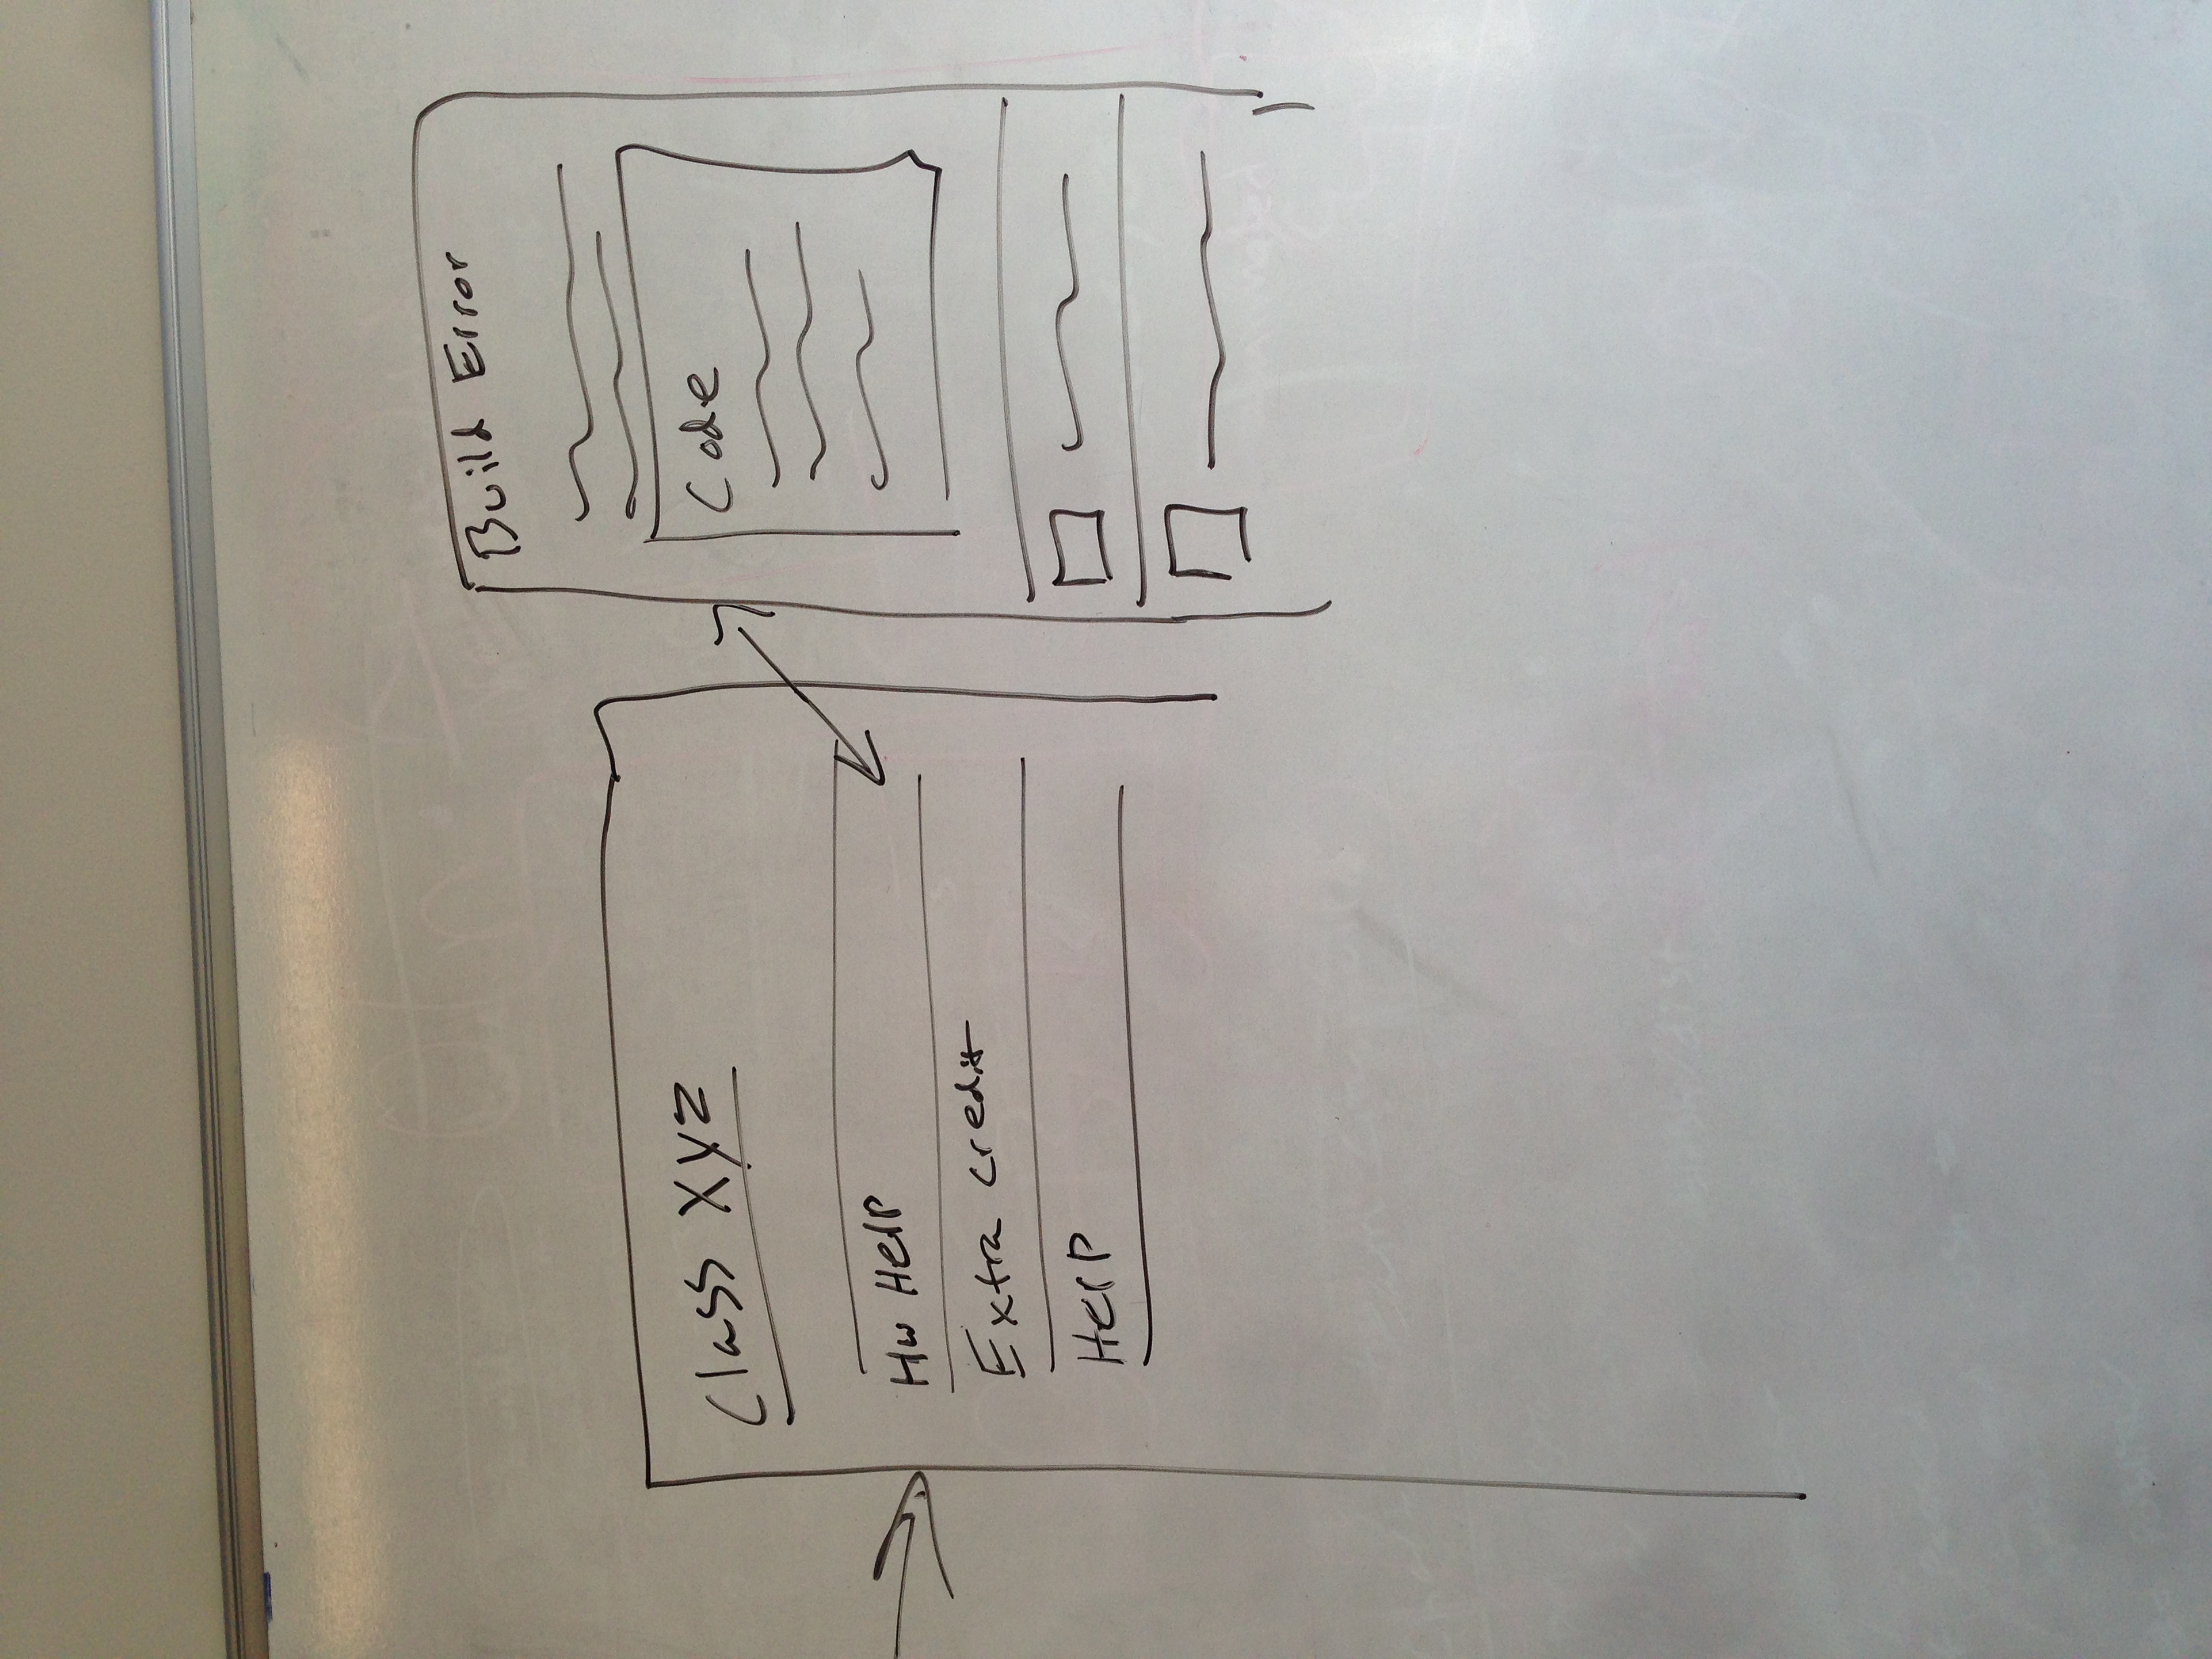 Class XYZ
Hw Help
Extra credit
Help
Build Error
Code